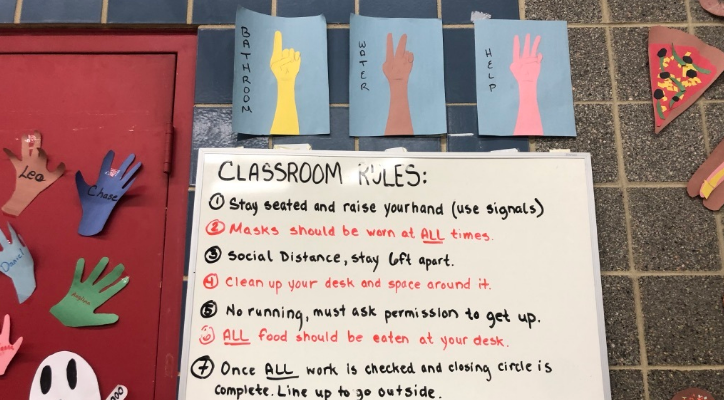 BATHROOM
WATER
HELP
CLASSROOM RULES:
① Stay seated and raise your hand (use signals)
② Masks should be worn at ALL times.
③ Social Distance, stay 6ft apart.
④ Clean up your desk and space around it.
⑤ No running, must ask permission to get up.
⑥ ALL food should be eaten at your desk.
⑦ Once ALL work is checked and closing circle is
complete. Line up to go outside.
Leo
Chase
Daniel